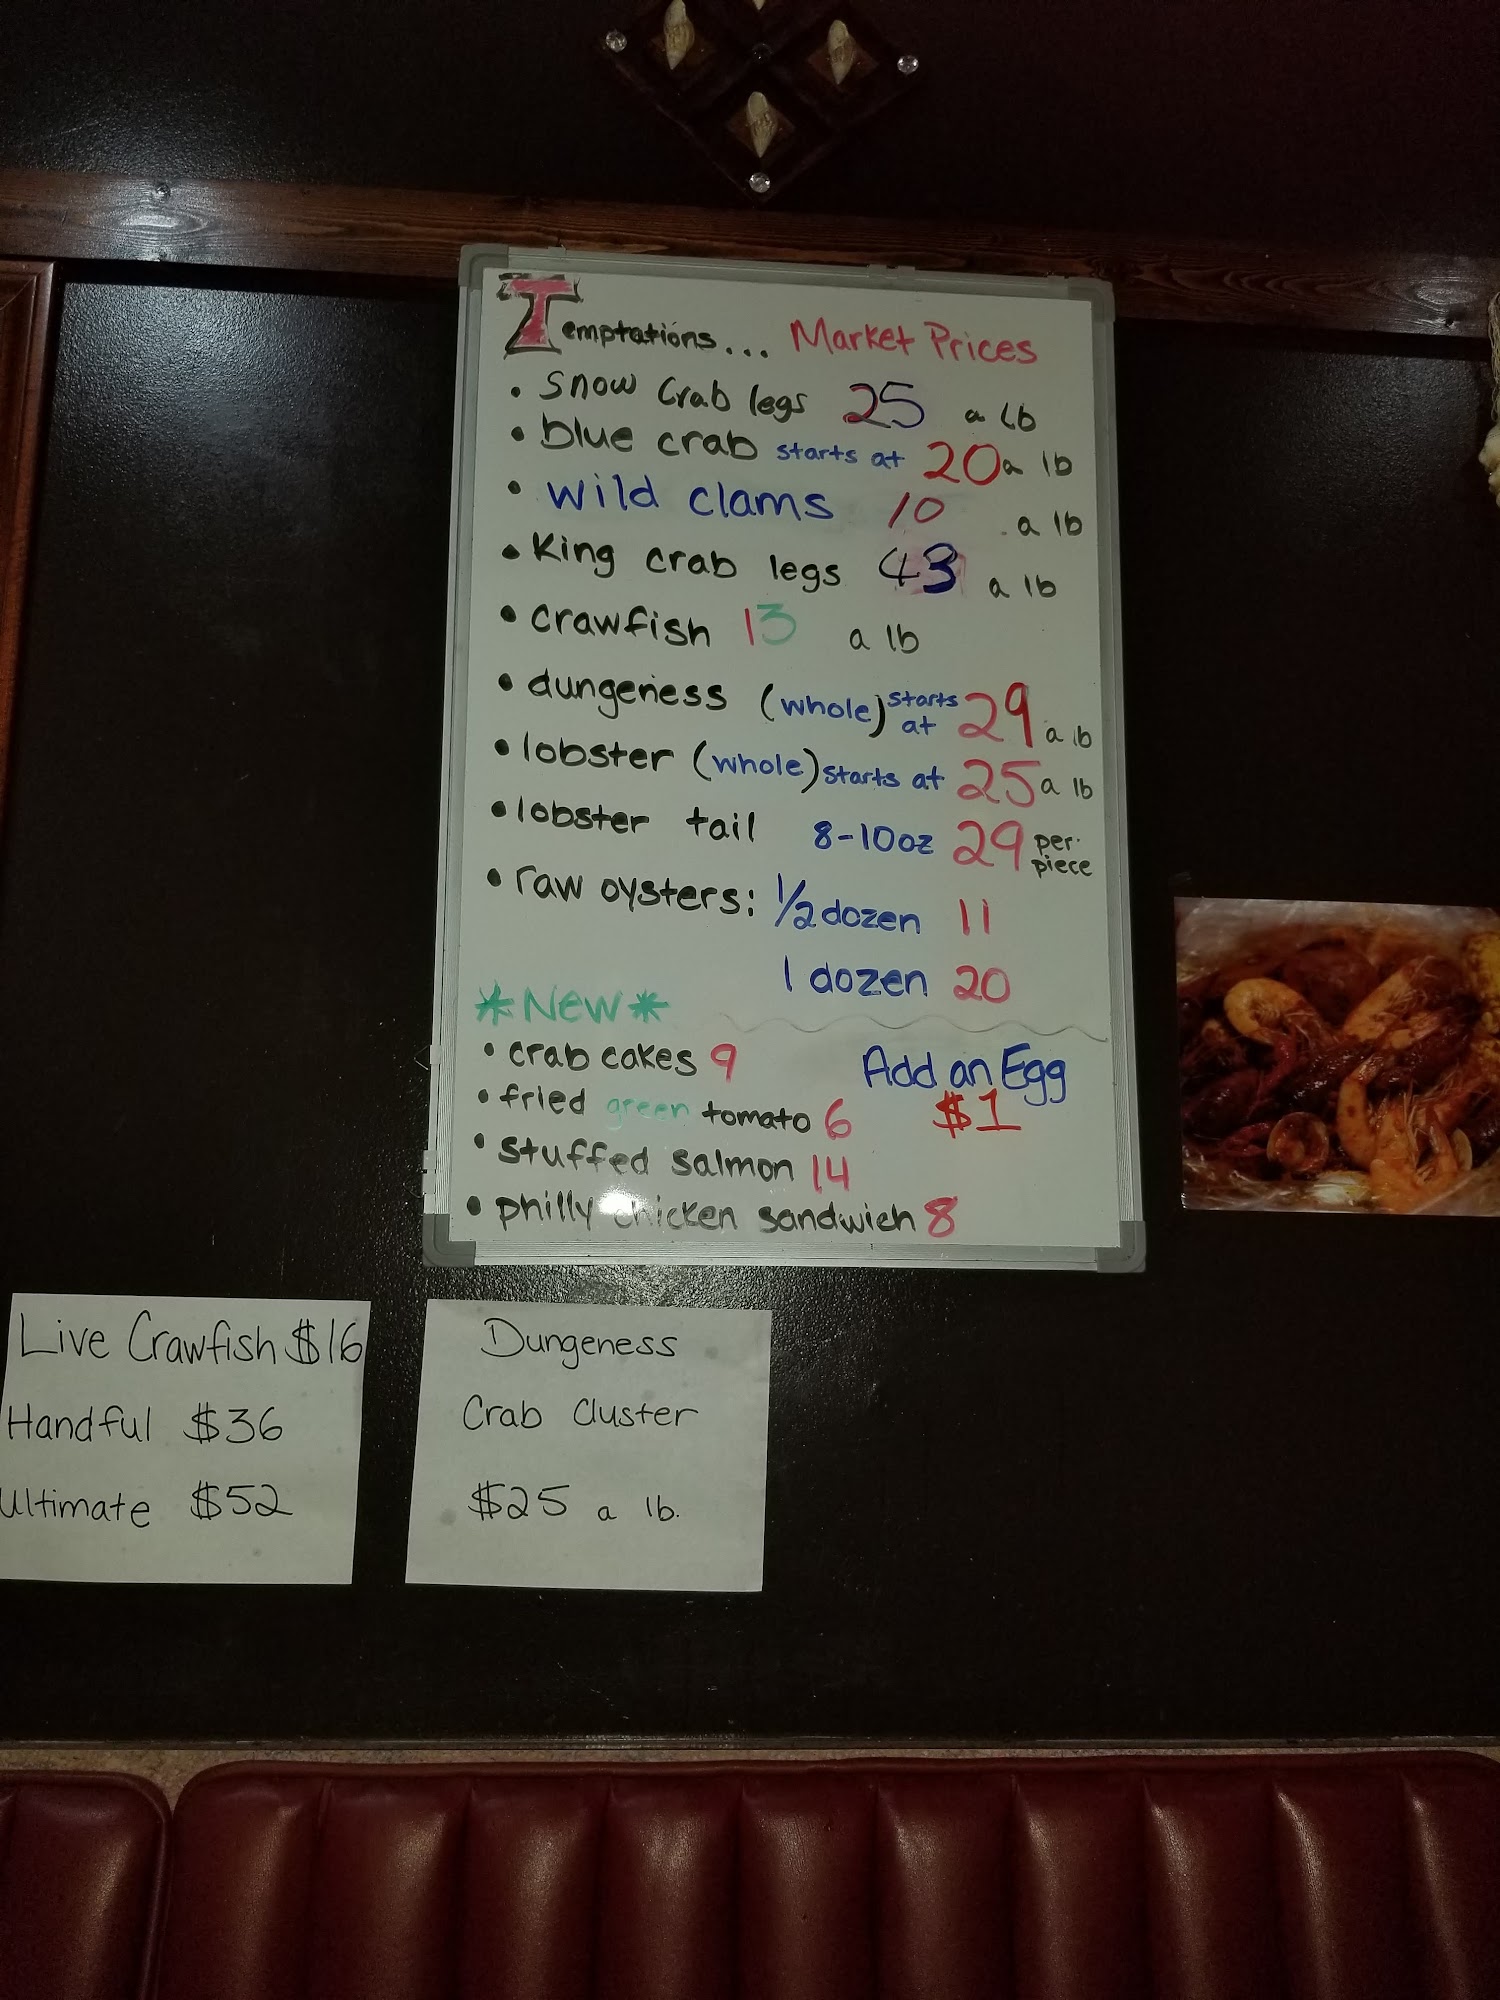 Temptations... Market Prices
• Snow Crab legs 25 a lb
• blue crab starts at 20 a lb
• wild clams 10 a lb
• King crab legs 43 a lb
• crawfish 13 a lb
• dungeness (whole) starts at 29 a lb
• lobster (whole) starts at 25 a lb
• lobster tail 8-10oz 29 per piece
• raw oysters: 1/2 dozen 11
1 dozen 20
*New*
• crab cakes 9
• fried green tomato 6
• stuffed salmon 14
• philly chicken sandwich 8
Add an Egg
$1
Live Crawfish $16
Handful $36
Ultimate $52
Dungeness
Crab Cluster
$25 a lb.